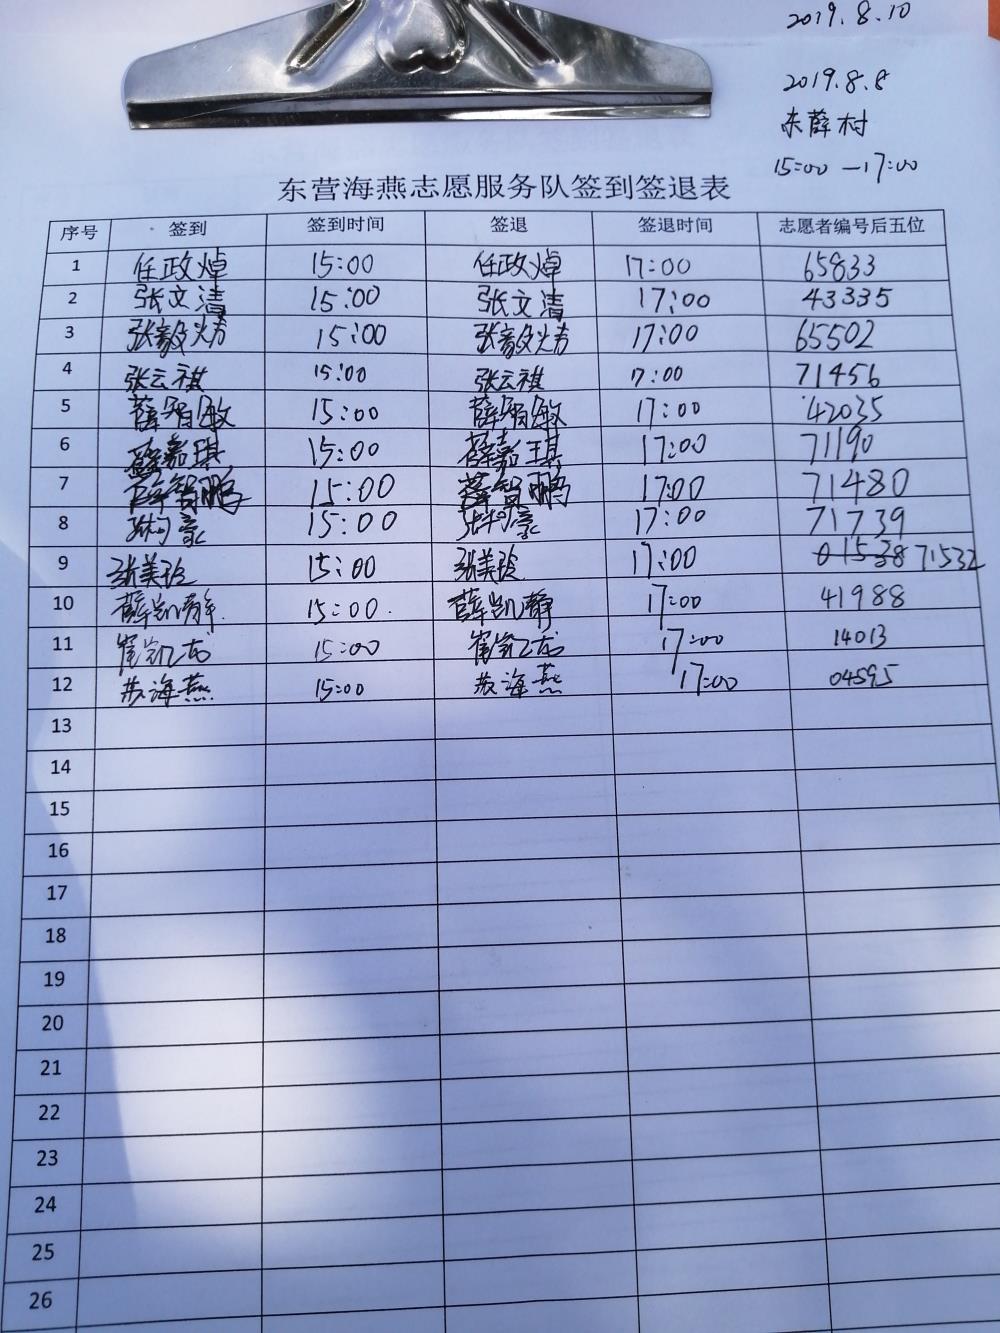 2019.8.10
2019.8.8
东薛村
15:00—17:00
东营海燕志愿服务队签到签退表
序号 签到 签到时间 签退 签退时间 志愿者编号后五位
1 任政焯 15:00 任政焯 17:00 65833
2 张文清 15:00 张文清 17:00 43335
3 张毅 15:00 张毅 17:00 65502
4 张云祺 15:00 张云祺 17:00 71456
5 薛智敏 15:00 薛智敏 17:00 42035
6 薛嘉琪 15:00 薛嘉琪 17:00 71190
7 薛智鹏 15:00 薛智鹏 17:00 71480
8 15:00 17:00 71739
9 张美玲 15:00 张美玲 17:00 01538 71532
10 薛凯静 15:00 薛凯静 17:00 41988
11 崔凯 15:00 崔凯 17:00 14013
12 苏海燕 15:00 苏海燕 17:00 04595
13
14
15
16
17
18
19
20
21
22
23
24
25
26